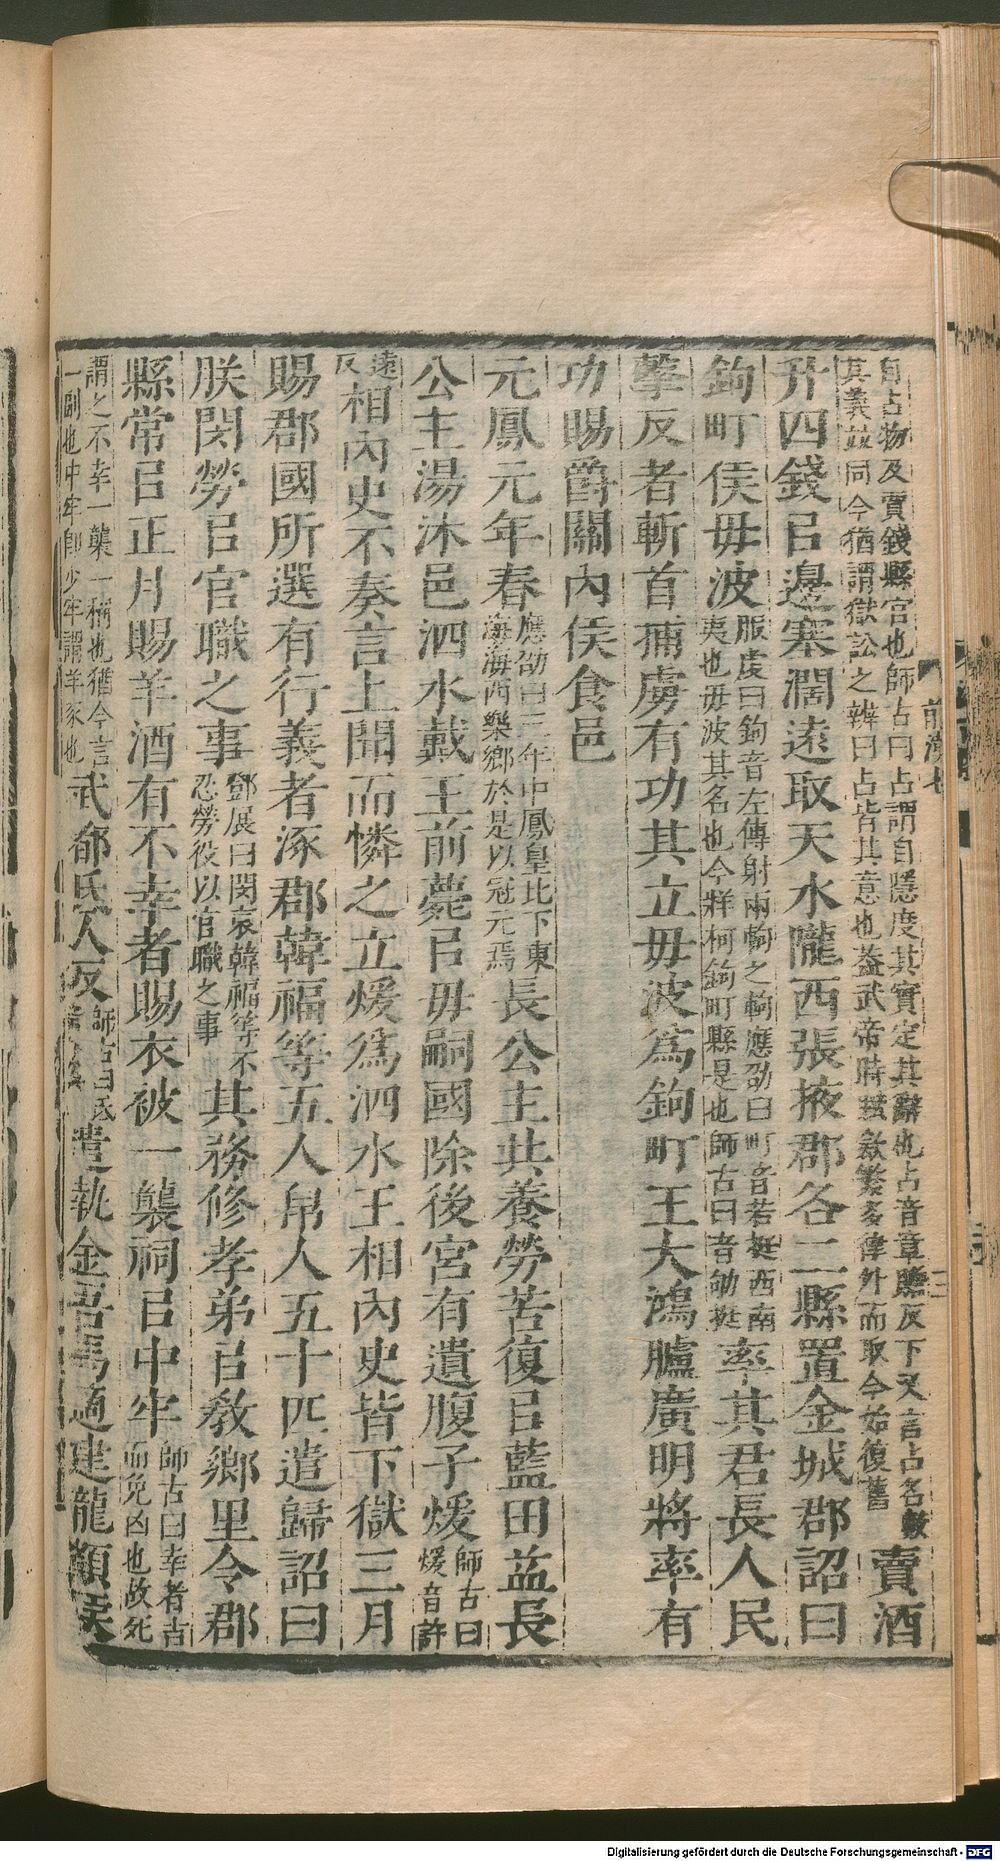 自占物及賈錢縣官也師古曰占謂自隱度其實定其辭也占音章贍反下又言占名數
其義竝同今猶謂獄訟之辨曰占皆其意也蓋武帝時賦斂繁多律外而取今始復舊
賣酒
升四錢㠯邊塞濶遠取天水隴西張掖郡各二縣置金城郡詔曰
鉤町侯毋波
服虔曰鉤音左傳射兩軥之軥應劭曰町音若挺西南
夷也毋波其名也今牂柯鉤町縣是也師古曰音劬挺
率其君長人民
擊反者斬首捕虜有功其立毋波爲鉤町王大鴻臚廣明將率有
功賜爵關內侯食邑
元鳳元年春
應劭曰三年中鳳皇比下東
海海西樂鄉於是以冠元焉
長公主共養勞苦復㠯藍田益長
公主湯沐邑泗水戴王前薨㠯毋嗣國除後宮有遺腹子煖
師古曰
煖音許
遠
反
相內史不奏言上聞而憐之立煖爲泗水王相內史皆下獄三月
賜郡國所選有行義者涿郡韓福等五人帛人五十匹遣歸詔曰
朕閔勞㠯官職之事
鄧展曰閔哀韓福等不
忍勞役以官職之事
其務修孝弟㠯敎鄉里令郡
縣常㠯正月賜羊酒有不幸者賜衣被一襲祠㠯中牢
師古曰幸者吉
而免凶也故死
謂之不幸一襲一稱也猶今言
一副也中牢卽少牢謂羊豕也
武都氐人反
師古曰氐
遣執金吾馬適建龍頟侯
前漢七
二
Digitalisierung gefördert durch die Deutsche Forschungsgemeinschaft - DFG